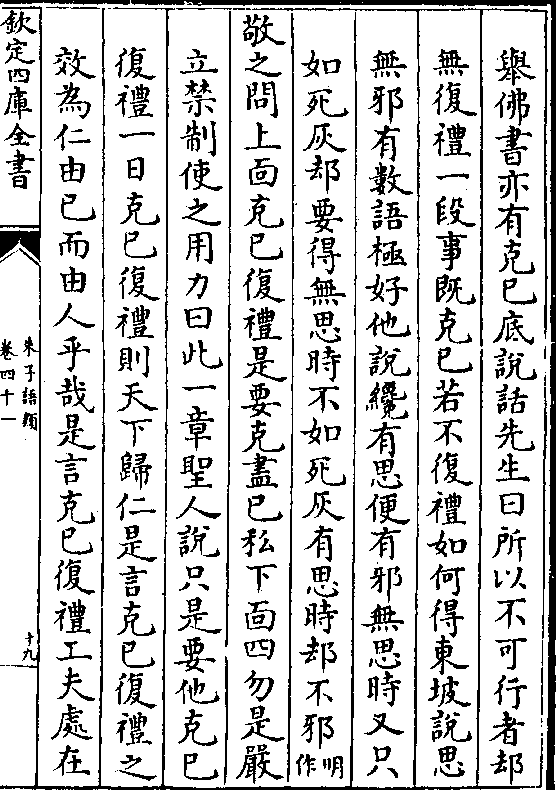 舉佛書亦有克己底說話先生曰所以不可行者却
無復禮一段事既克己若不復禮如何得東坡說思
無邪有數語極好他說纔有思便有邪無思時又只
如死灰却要得無思時不如死灰有思時却不邪明作
敬之問上面克己復禮是要克盡己私下面四勿是嚴
立禁制使之用力曰此一章聖人說只是要他克己
復禮一日克己復禮則天下歸仁是言克己復禮之
效為仁由己而由人乎哉是言克己復禮工夫處在
欽定四庫全書
朱子語類
卷四十一
十九